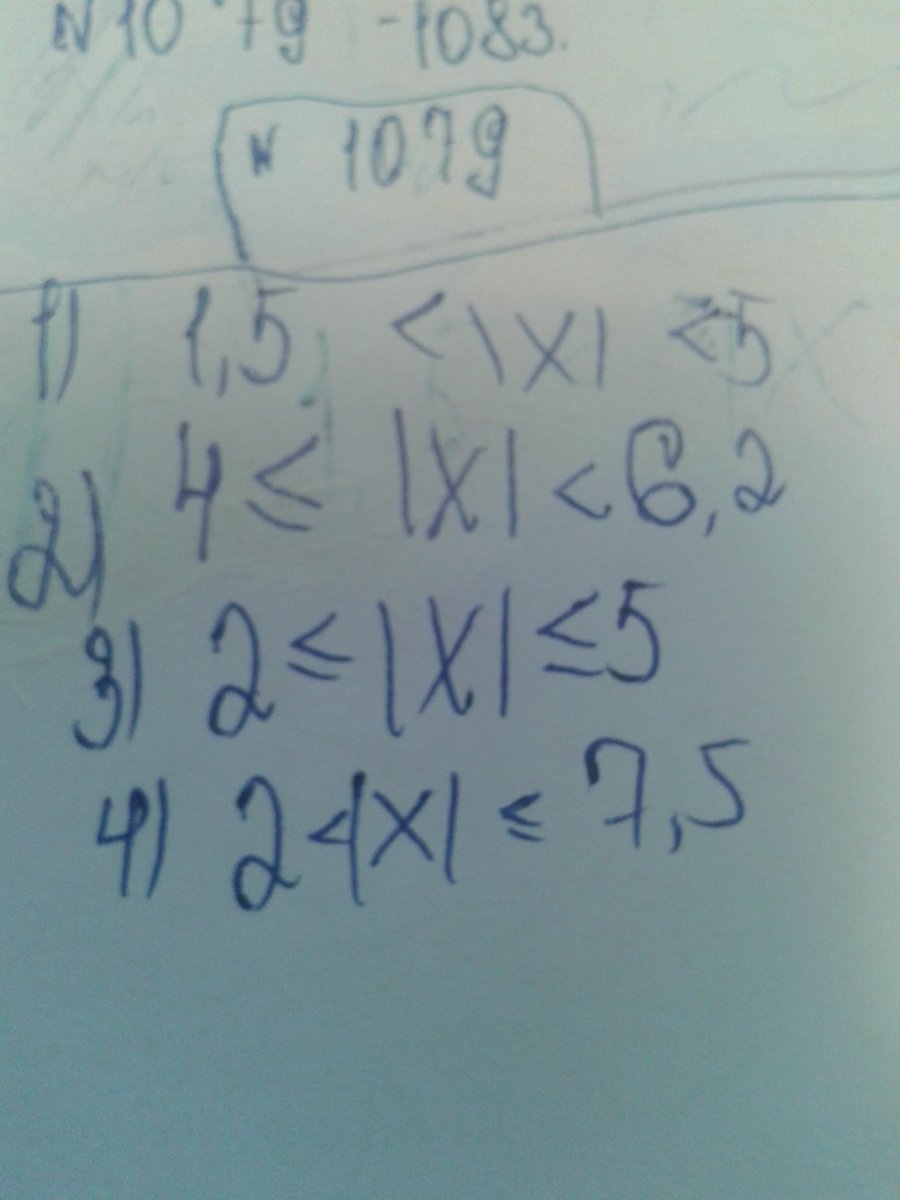 N 1079 -1083.
N 1079
1) 1,5 < |X| < 5
2) 4 ≤ |X| < 6,2
3) 2 ≤ |X| ≤ 5
4) 2 < |X| ≤ 7,5